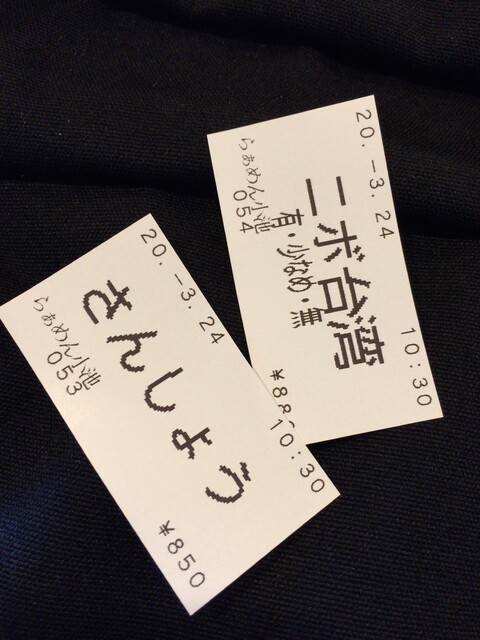 20.-3.24
10:30
さんしょう
¥850
らぁめん小池
053
20.-3.24
10:30
ニボ台湾
有・少なめ・無
らぁめん小池
054